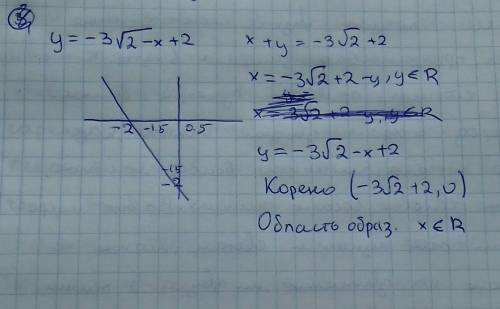 y = -3√2 - x + 2
x + y = -3√2 + 2
x = -3√2 + 2 - y, y ∈ R
y = -3√2 - x + 2
Корено (-3√2 + 2, 0)
Область образ. x ∈ R
-2 -1.5 0.5
-1.5
-2